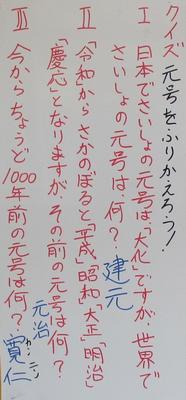 クイズ 元号をふりかえろう!
Ⅰ 日本でさいしょの元号は、「大化」ですが、世界で
さいしょの元号は、何? 建元
Ⅱ 「令和」からさかのぼると「平成」「昭和」「大正」「明治」
「慶応」となりますが、その前の元号は何?
元治
Ⅲ 今からちょうど1000年前の元号は何? 寛仁
カンニン